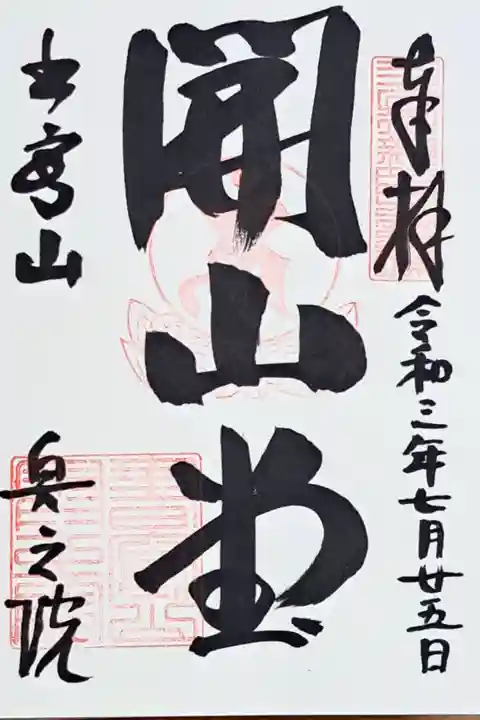 奉拝
令和三年七月廿五日
開山堂
書写山
奥之院